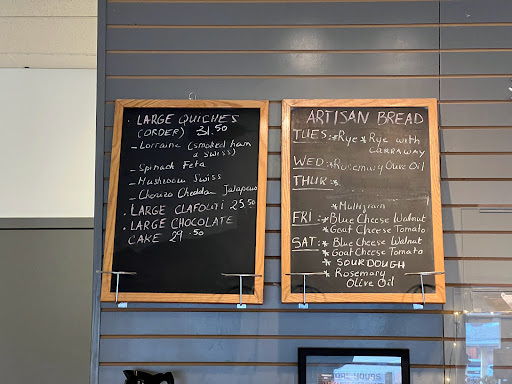 . LARGE QUICHES
(ORDER) 31.50
- Lorraine (smoked ham
& SWISS)
- Spinach Feta
- Mushroom Swiss
- Chorizo Cheddar Jalapeno
. LARGE CLAFOUTI 25.50
. LARGE CHOCOLATE
CAKE 29.50
ARTISAN BREAD
TUES: * Rye * Rye with
CARRAWAY
WED: * Rosemary Olive Oil
THUR: *
* Multigrain
FRI: * Blue Cheese Walnut
* Goat Cheese Tomato
SAT: * Blue Cheese Walnut
* Goat Cheese Tomato
* SOURDOUGH
* Rosemary
Olive Oil